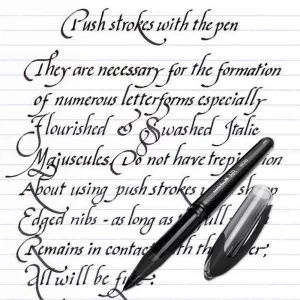 Push strokes with the pen
They are necessary for the formation
of numerous letterforms especially
Flourished & Swashed Italic
Majuscules. Do not have
About using push strokes
Edged nibs - as long as
Remains in contact
All will be